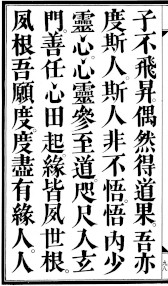 子不飛昇偶然得道果。吾亦
度斯人。斯人非不悟。悟內少
靈心。心靈參至道。咫尺入玄
門。善任心田起。緣皆夙世根。
夙根吾願度。度盡有緣人。人